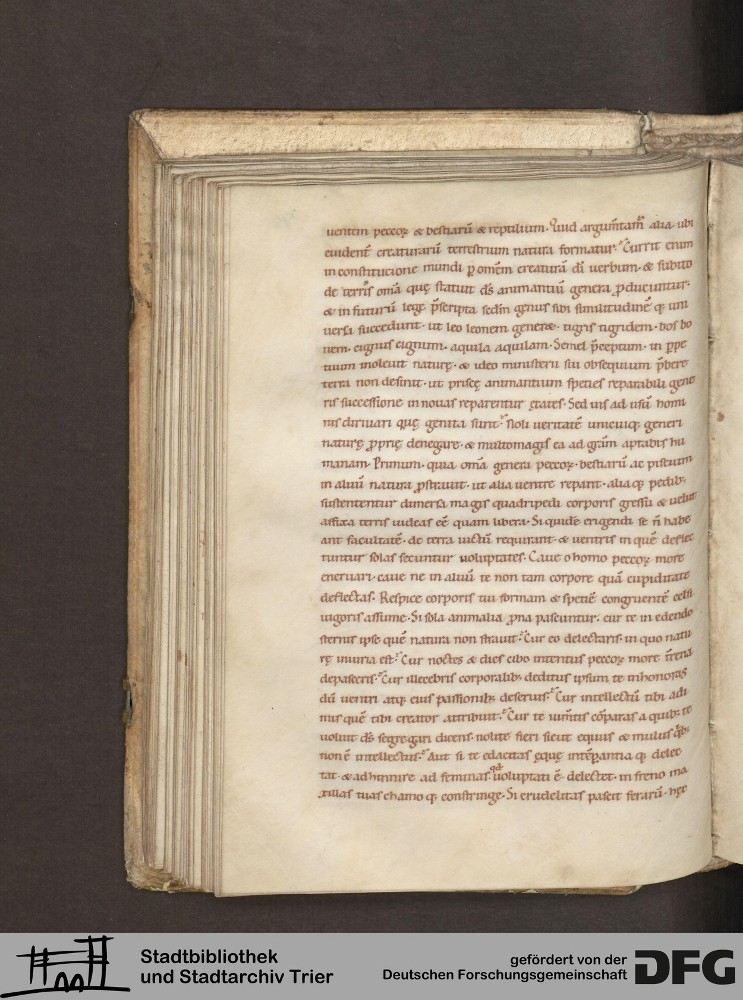 uentem peccoꝝ & bestiarū & reptilium. Quid argum̄tam̄ alia. ubi
euident̄ creaturarū terrestrium natura formatur.? Currit enim
in constitucione mundi ꝑ omēm creaturā dī uerbum. & subito
de terris om̄a quę statuit dſ animantiū genera ꝓducuntur.
& in futurū lege p̄scripta sedm̄ genus sibi similitudinē q; uni
uersa succedunt. ut leo leonem gener&. tigris tigridem. bos bo
uem. cignus cignum. aquila aquilam. Semel p̄ceptum. in ꝑpe
tuum inoleuit naturę. & ideo ministerii sui obsequium p̄bere
terra non desinit. ut priscę animantium species reparabili gene
ris successione in nouas reparentur ętates. Sed uis ad usū homi
nis diriuari quę genita sunt.? Noli ueritatē unicuiq; generi
naturę ꝓprię denegare. & multomagis ea ad gr̄am aptabis hu
manam. Primum. quia om̄a genera peccoꝝ. bestiarū ac piscium
in aluū natura ꝓstrauit. ut alia uentre repant. alia q; pedib;
sustententur dimersa magis quadripedi corporis gressu & uelut
affixa terris uideas eē quam libera. Si quidē erigendi se n̄ habe
ant facultatē. de terra uictū requirant. & uentris in quē deflec
tuntur solas secuntur uoluptates. Caue o homo peccoꝝ more
eneruari. caue ne in aluū te non tam corpore quā cupiditate
deflectas. Respice corporis tui formam & speciē congruentē celsi
uigoris assume. Si sola animalia ꝓna pascuntur. cur te in edendo
sternis ipse quē natura non strauit.? Cur eo delectaris in quo natu
rę iniuria est.? Cur noctes & dies cibo intentus peccoꝝ more t̄rena
depasceris.? Cur illecebris corporalib; deditus ipsum te inhonoras
dū uentri atq; eius passionib; deseruis.? Cur intellectū tibi adi
mis quē tibi creator attribuit.? Cur te ium̄tis cōparas a quib; te
uoluit dſ segregari dicens. nolite fieri sicut equus & mulus q̄b;
non ē intellectus.? Aut si te edacitas ęquę intēꝑantia q; delec
tat. & adhinnire ad feminas qd̄ uoluptati ē. delectet. in freno ma
xillas tuas chamo q; constringe. Si crudelitas pascit ferarū. hęc
Stadtbibliothek
und Stadtarchiv Trier
gefördert von der
Deutschen Forschungsgemeinschaft
DFG